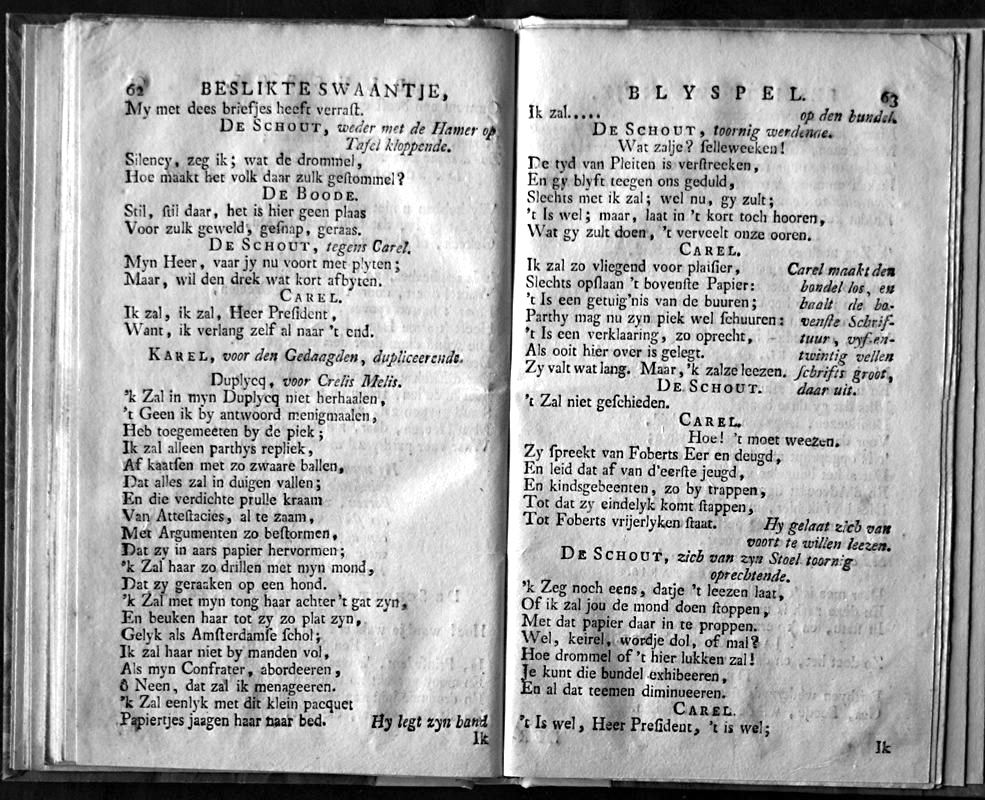 62 BESLIKTE SWAANTJE,
My met dees briefjes heeft verraſt.
DE SCHOUT, weder met de Hamer op
Tafel kloppende.
Silency, zeg ik; wat de drommel,
Hoe maakt het volk daar zulk geſtommel?
DE BOODE.
Stil, ſtil daar, het is hier geen plaas
Voor zulk geweld, geſnap, geraas.
DE SCHOUT, tegens Carel.
Myn Heer, vaar jy nu voort met plyten;
Maar, wil den drek wat kort afbyten.
CAREL.
Ik zal, ik zal, Heer Preſident,
Want, ik verlang zelf al naar 't end.
KAREL, voor den Gedaagden, dupliceerende.
Duplycq, voor Crelis Melis.
'k Zal in myn Duplycq niet herhaalen,
't Geen ik by antwoord menigmaalen,
Heb toegemeeten by de piek;
Ik zal alleen parthys repliek,
Af kaatſen met zo zwaare ballen,
Dat alles zal in duigen vallen;
En die verdichte prulle kraam
Van Atteſtacies, al te zaam,
Met Argumenten zo beſtormen,
Dat zy in aars papier hervormen;
'k Zal haar zo drillen met myn mond,
Dat zy geraaken op een hond.
'k Zal met myn tong haar achter 't gat zyn,
En beuken haar tot zy zo plat zyn,
Gelyk als Amſterdamſe ſchol;
Ik zal haar niet by manden vol,
Als myn Confrater, abordeeren,
ô Neen, dat zal ik menageeren.
'k Zal eenlyk met dit klein pacquet
Papiertjes jaagen haar naar bed. Hy legt zyn band
Ik
BLYSPEL. 63
Ik zal..... op den bundel.
DE SCHOUT, toornig werdende.
Wat zalje? ſelleweeken!
De tyd van Pleiten is verſtreeken,
En gy blyft teegen ons geduld,
Slechts met ik zal; wel nu, gy zult;
't Is wel; maar, laat in 't kort toch hooren,
Wat gy zult doen, 't verveelt onze ooren.
CAREL.
Ik zal zo vliegend voor plaiſier, Carel maakt den
Slechts opſlaan 't bovenſte Papier: bondel los, en
't Is een getuig'nis van de buuren; haalt de bo-
Parthy mag nu zyn piek wel ſchuuren: venſte Schrif-
't Is een verklaaring, zo oprecht, tuur, vyf-en-
Als ooit hier over is gelegt. twintig vellen
Zy valt wat lang. Maar, 'k zalze leezen. ſchrifts groot,
DE SCHOUT. daar uit.
't Zal niet geſchieden.
CAREL.
Hoe! 't moet weezen.
Zy ſpreekt van Foberts Eer en deugd,
En leid dat af van d'eerſte jeugd,
En kindsgebeenten, zo by trappen,
Tot dat zy eindelyk komt ſtappen,
Tot Foberts vrijerlyken ſtaat. Hy gelaat zich van
voort te willen leezen.
DE SCHOUT, zich van zyn Stoel toornig
oprechtende.
'k Zeg noch eens, datje 't leezen laat,
Of ik zal jou de mond doen ſtoppen,
Met dat papier daar in te proppen.
Wel, keirel, wordje dol, of mal?
Hoe drommel of 't hier lukken zal!
Je kunt die bundel exhibeeren,
En al dat teemen diminueeren.
CAREL.
't Is wel, Heer Preſident, 't is wel;
Ik